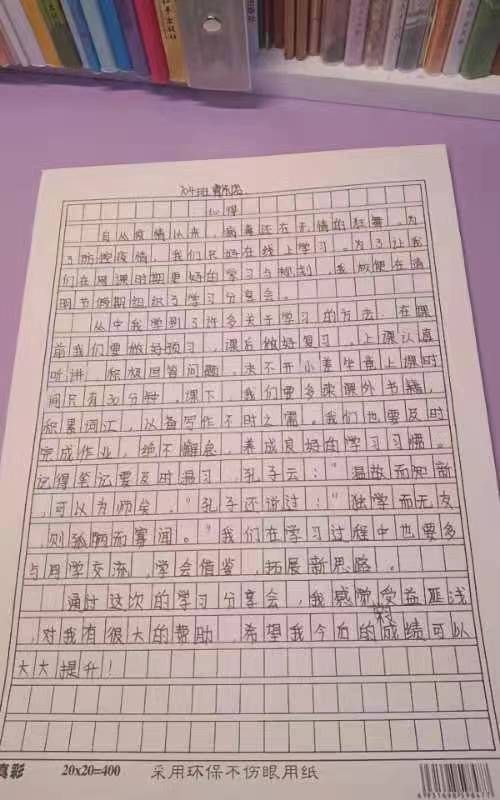 心得
自从疫情以来，病毒还在无情的狂舞。为
了防控疫情，我们只好在线上学习。为了让我
们在网课时期更好的学习与规划，我校便在清
明节假期组织了学习分享会。
从中我学到了许多关于学习的方法。在课
前我们要做好预习，课后做好复习。上课认真
听讲，积极回答问题，决不开小差毕竟上课时
间只有30分钟。课下，我们要多读课外书籍，
积累词汇，以备写作不时之需。我们也要及时
完成作业，绝不懈怠，养成良好的学习习惯。
记得笔记要及时温习，孔子云：“温故而知新
，可以为师矣。”孔子还说过：“独学而无友
，则孤陋而寡闻。”我们在学习过程中也要多
与同学交流，学会借鉴，拓展新思路。
通过这次的学习分享会，我感觉受益匪浅
，对我有很大的帮助，希望我今后的成绩可以
大大提升！
真彩 20x20=400 采用环保不伤眼用纸